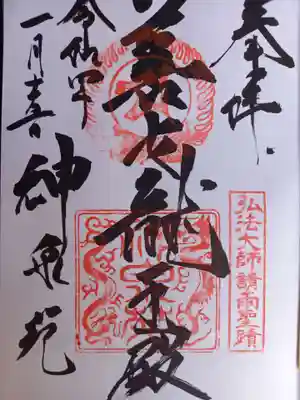 奉拝
弘法大師請雨聖蹟
善女龍王殿
一月十三日
神泉苑